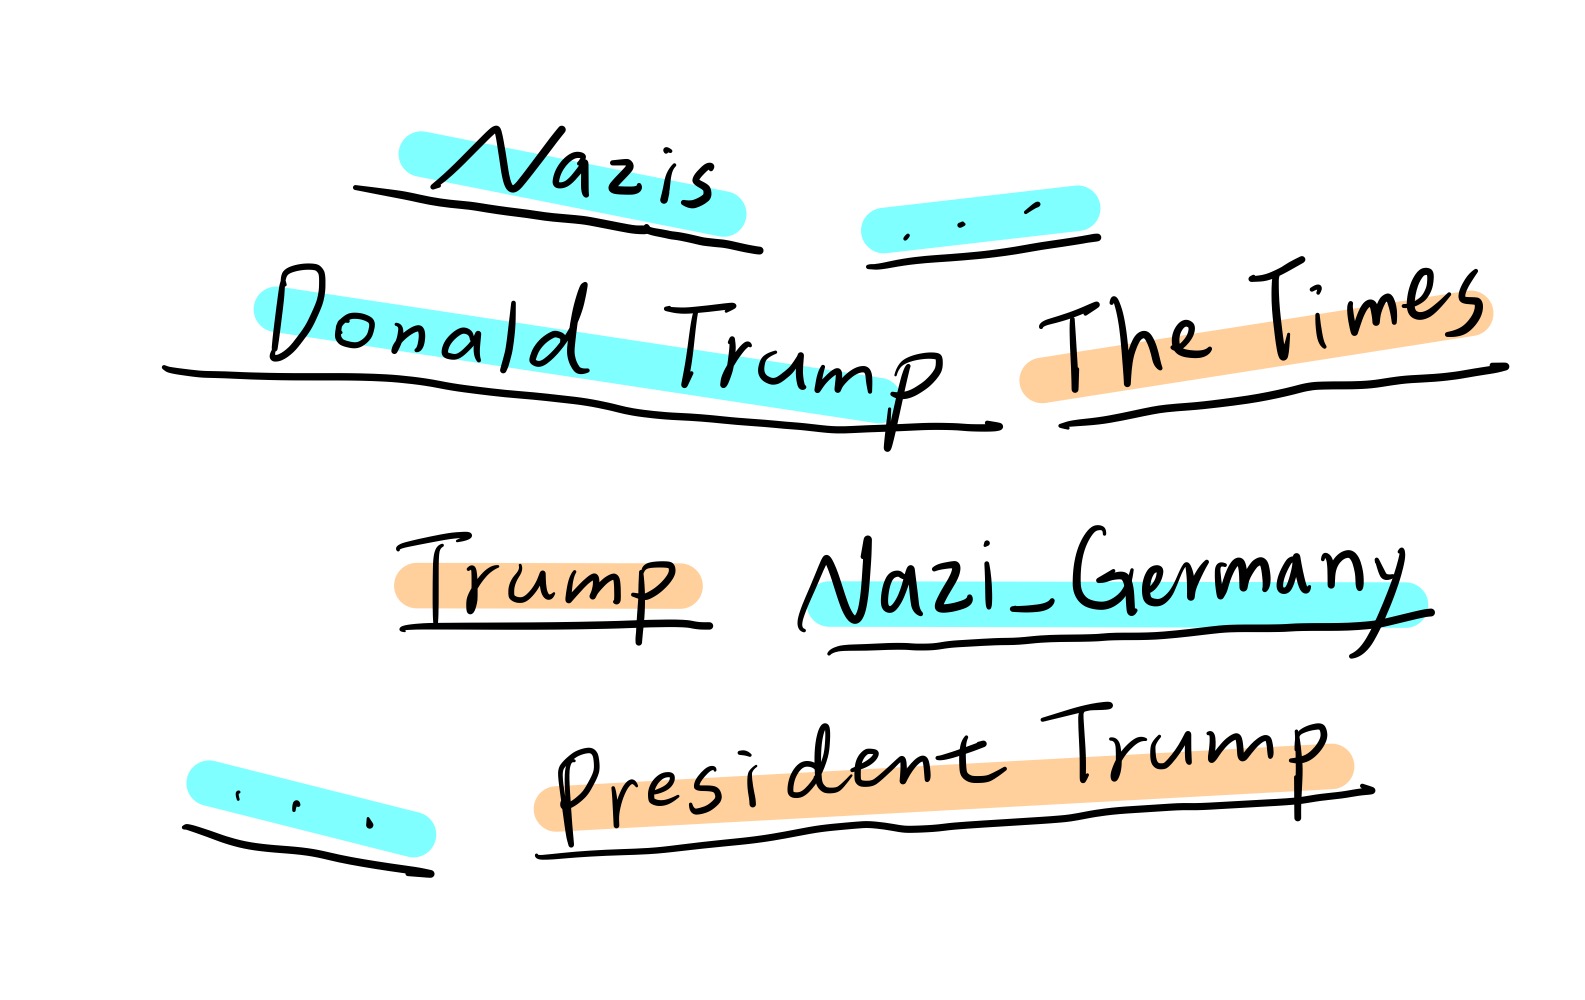 Nazis
. . .
Donald Trump
The Times
Trump
Nazi_Germany
. . .
President Trump